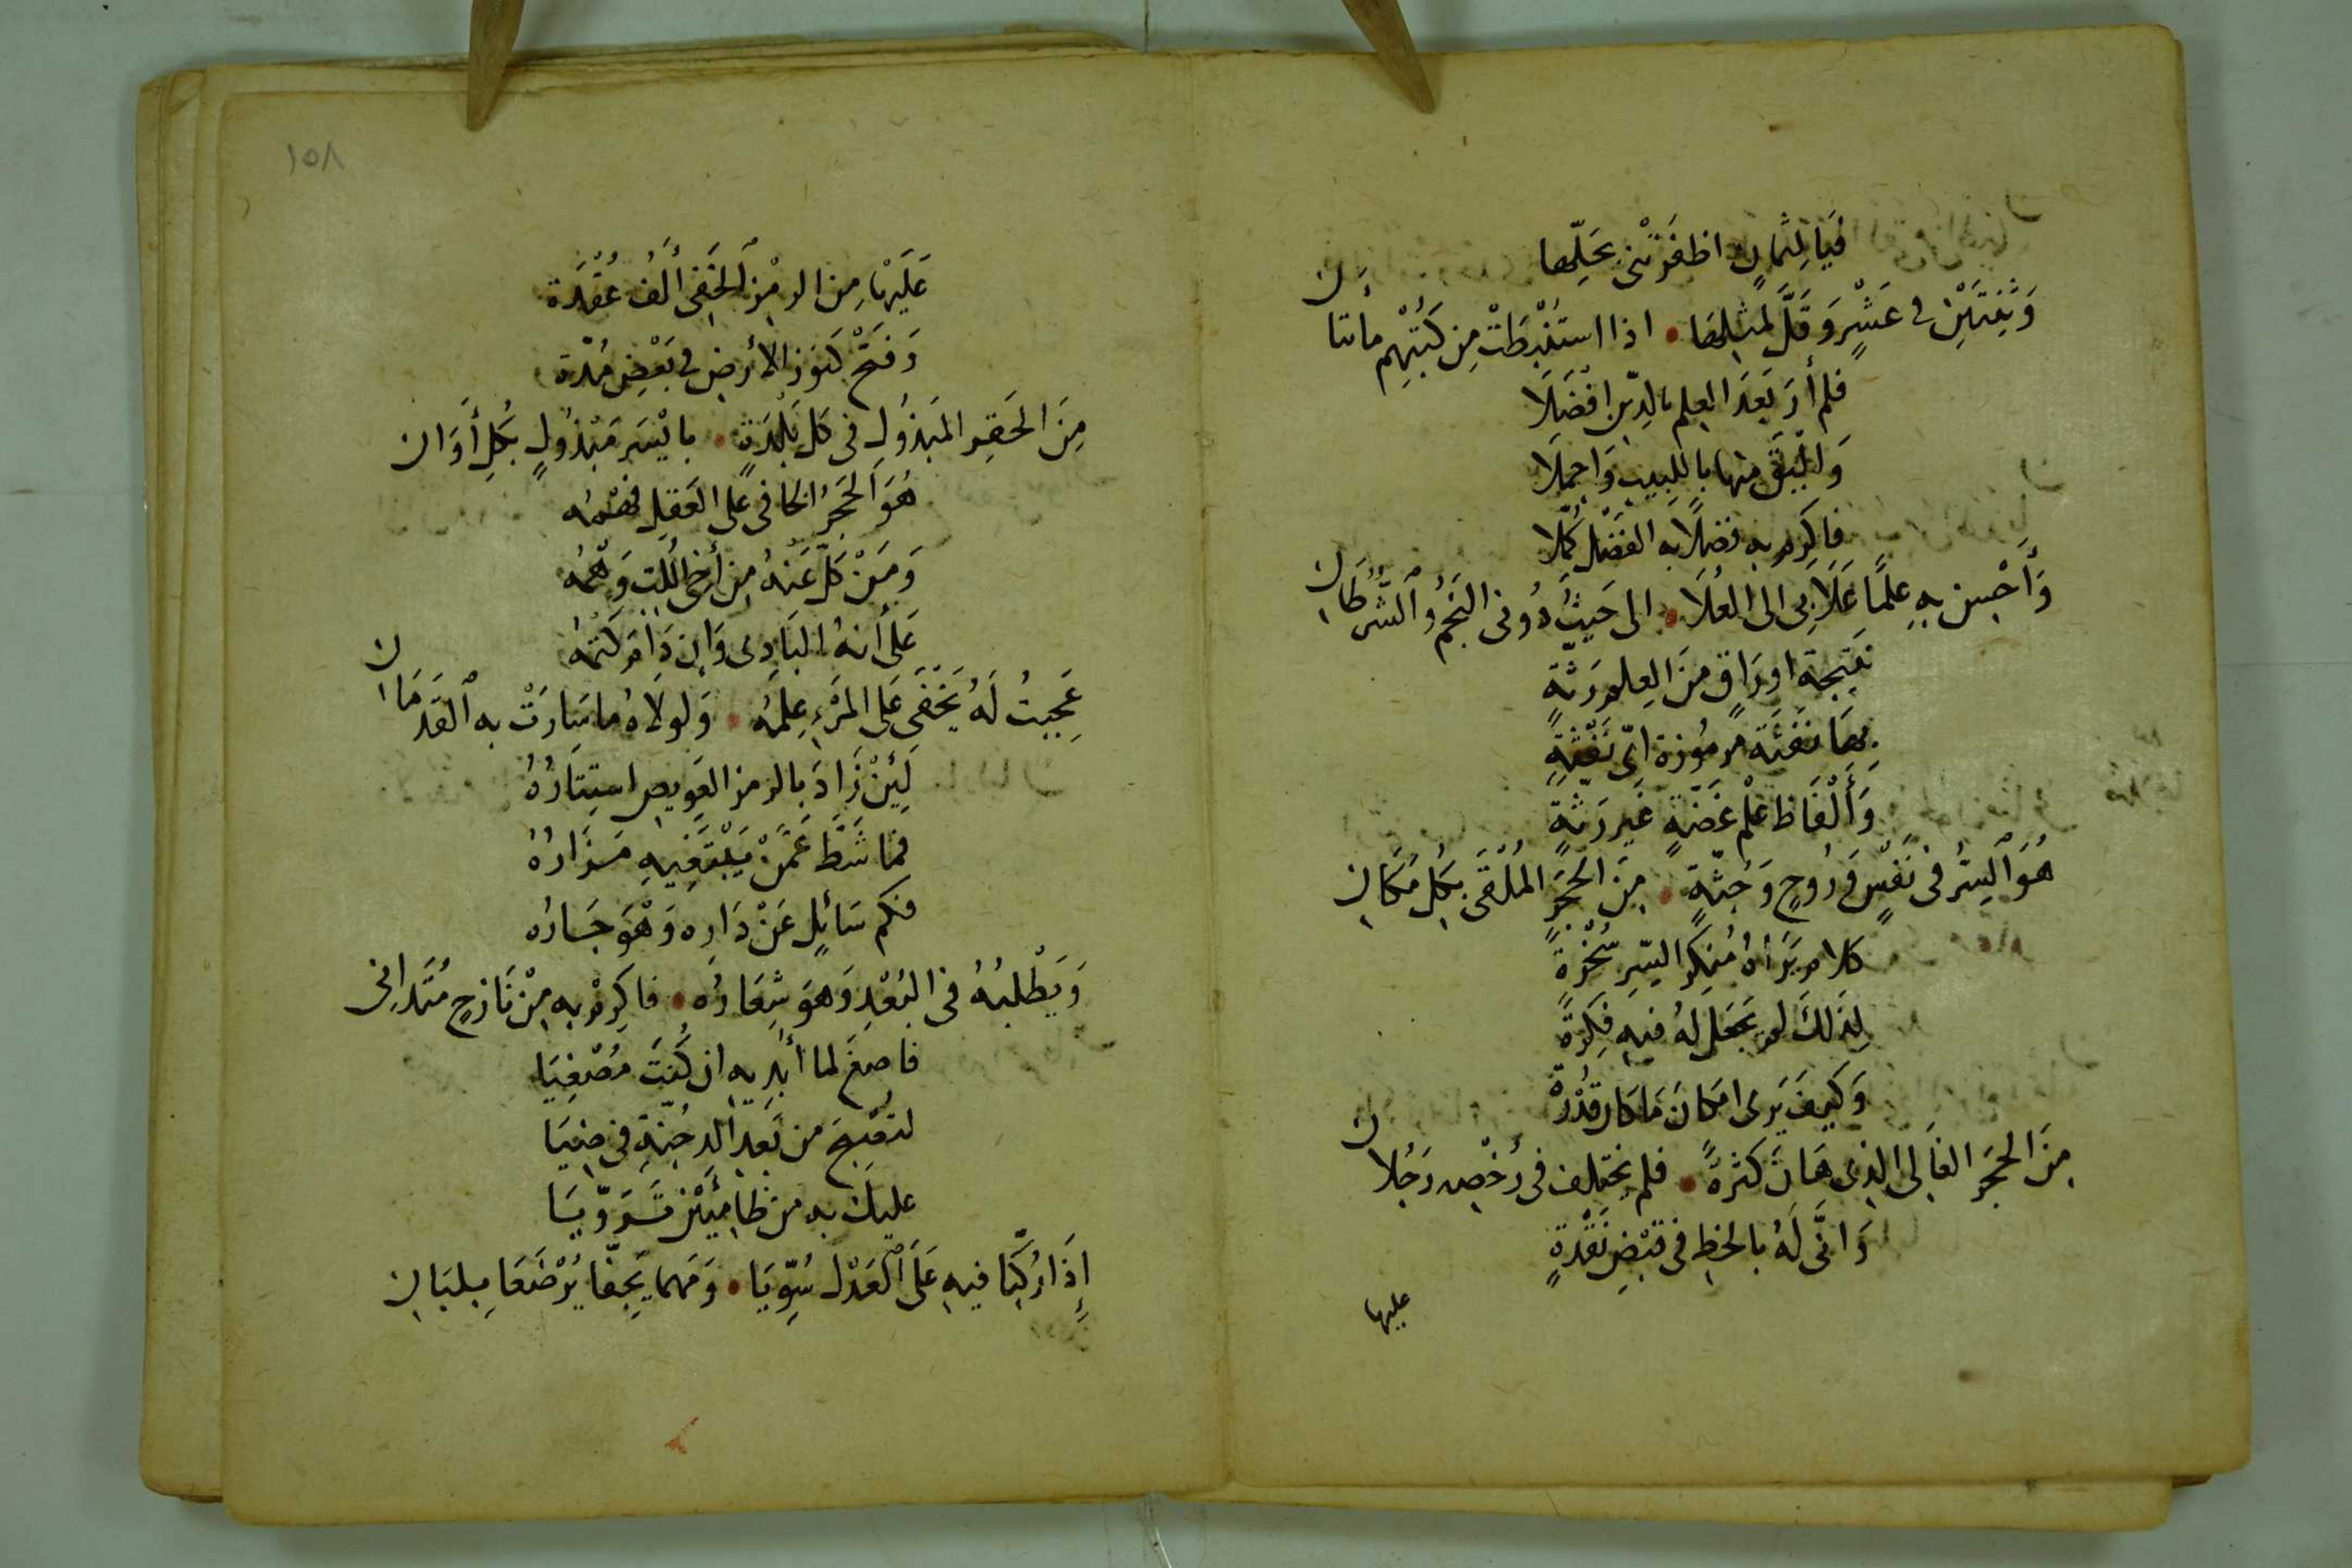 فَيَا لِثَمانٍ اظفَرَتْني بحَلِّها
وَثِنتَيْنِ في عَشْرٍ وَقَلَّ لِمثلِها • اذا استُنْبِطَتْ مِن كُتْبِهِم مائتان
فلم أَرَ بَعدَ العِلم بالدِّين افْضَلَا
وَاليَقَ منها باللبيبِ وَاجملَا
فاكرِم به فضلًا به الفَضْل كُمّلا
وَأَحْسِن بهِ علمًا عَلَا بي الى العُلَا • الى حَيثُ دُوني النَجمُ وَالشَّرَطَانِ
نتيجة اورَاقٍ مِنَ العِلم رَثّةٍ
بِهَا نَفثَة مرمُوزة ايّ نَفْثَةِ
وَأَلْفَاظ عِلْمٍ غَضَّةٍ غَير رَثّةٍ
هُوَ السِرُّ في نَفْسٍ وَرُوحٍ وَجُثّةٍ • مِنَ الحَجَرِ المُلْقَى بكلِ مَكَانِ
كلام يَرَاهُ مُنكِر السِرِّ سُخْرةً
لِذلكَ لم يجعَل لهُ فيهِ فكِرةً
وَكيفَ يَرى امكانَ مَا كان قدُرة
مِنَ الحجَر الغَالي الذي هَانَ كثرةً • فلم يختلف في رُخْصِه رَجُلانِ
وَانَّى لَهُ بالحظِ في قبْضِ نَقْدةٍ
عليها
١٥٨
عَلَيْهَا مِن الرمْزِ الخَفِي أَلفُ عُقْدَة
وَفَتَح كنوز الأرضِ في بَعْضِ مُدّة
مِنَ الحَقِير المَبذُولِ في كل بَلْدَةٍ • بايْسَرِ مَبْذُولٍ بكُلِ أَوَان
هُوَ الحَجَرُ الخافي على العَقلِ فهْمُه
وَمَنْ كَلَّ عَنهُ مِن أَخي اللُبِ وَهْمُه
عَلى أَنهُ البَادِى وَإن دَامَ كَتْمُهُ
عَجِبتُ لَهُ يَخْفَى عَلى المَرْءِ عِلمُهُ • وَلولَاهُ ما سَارَتْ به القَدَمَان
لَئِنْ زَادَ بالرمز العَويصِ استِتَارُهُ
فما شَطَّ عَمَّنْ يَبْتَغِيهِ مَزَارُهُ
فكم سَائِلٍ عَنْ دَارِه وَهْوَ جَارُه
وَيَطْلبُهُ في البُعْدِ وَهوَ شِعَارُه • فاكرِمْ به مِنْ نَازحٍ مُتَدانِي
فاصغَ لما أبديه ان كُنتَ مُصْغِيَا
لتصْبحَ من بَعدِ الدجُنّةِ في ضِيَا
عليكَ به من ظامِئَيْن تَرَوّيَا
إِذَا رُكِّبَا فيهِ عَلَى العَدْل سُوِّيَا • وَمَهما يَجِفّا يُرْضَعَا بلبَانِ